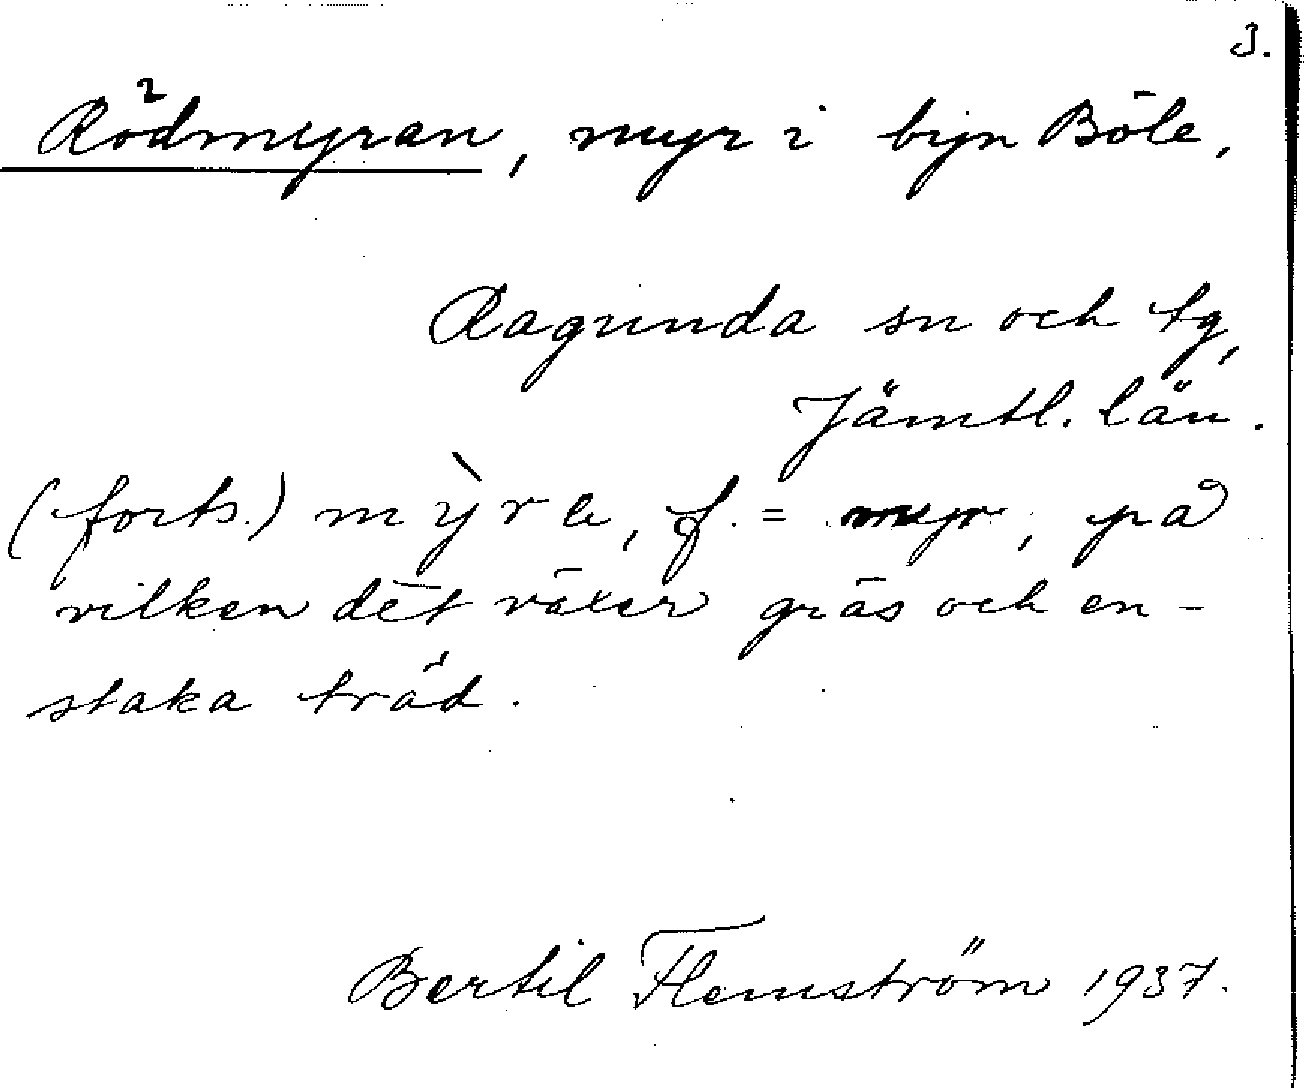 3.
Rödmyran, myr i byn Böle,
Ragunda sn och tg,
Jämtl. län.
(forts.) mỳra, f. = myr, på
vilken det växer gräs och en-
staka träd.
Bertil Flemström 1937.